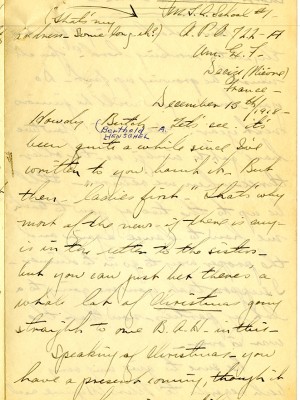 (that's my
address - Some long, eh?)
A.P.O. 722 - A
Am. E. F.
Decize (Nievre)
France -
December 15th/1918 -
Howdy Bertol - Let's see - it's
Berthold A.
HENSCHEL
been quite a while since I've
written to you, hasn't it. But
then "Ladies first" that's why
most of the news - if there is any -
is in the letter to the sisters -
but you can just bet there's a
whole lot of Christmas going
straight to one B.A.H. in this -
Speaking of Christmas - you
have a present coming, though it